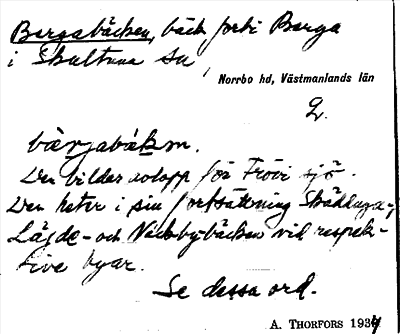 Bergabäcken, bäck förbi Berga
i Skultuna sn,
Norrbo hd, Västmanlands län
2.
bærjabäkm.
Den bildar avlopp för Frövi sjö.
Den heter i sin fortsättning
Lägde- och Vackby-bäcken vid respek-
tive byar.
Se dessa ord.
A. THORFORS 1934